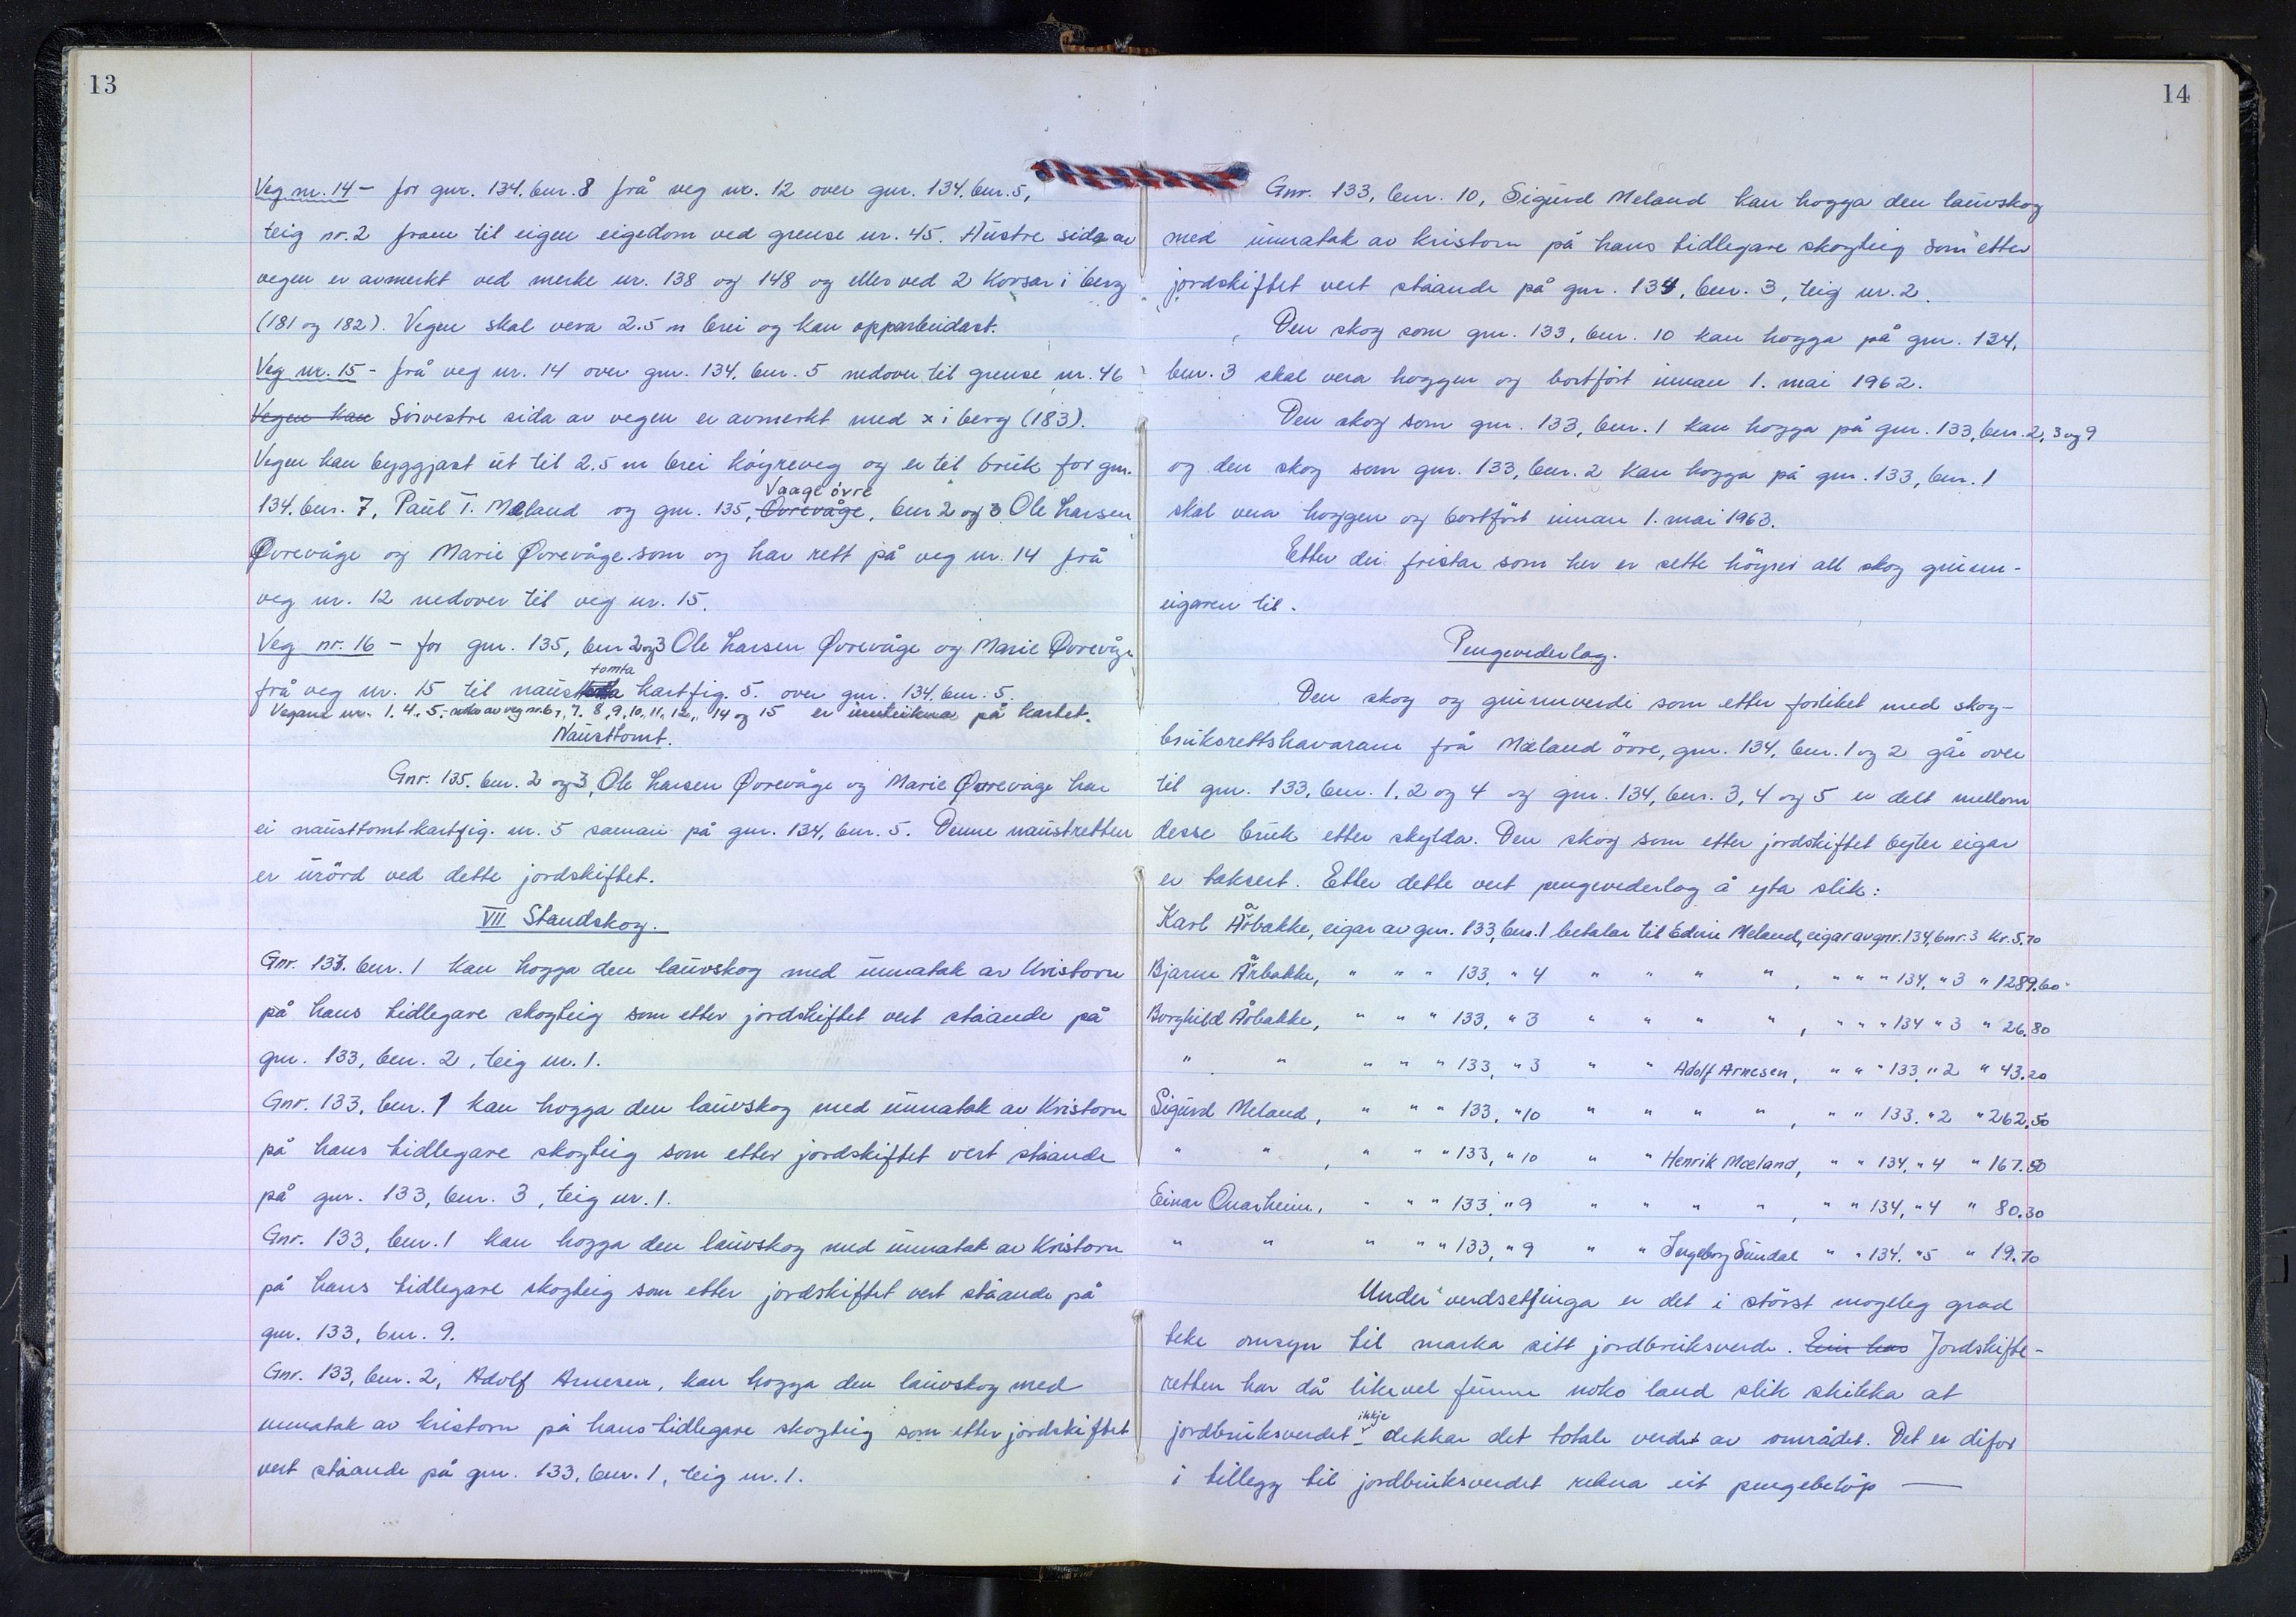 13
Veg nr. 14 - for gnr. 134. bnr. 8 frå veg nr. 12 over gnr. 134. bnr. 5,
teig nr. 2 fram til eigen eigedom ved grense nr. 45. Austre sida av
vegen er avmerkt ved merke nr. 138 og 148 og elles ved 2 Korsar i berg
(181 og 182). Vegen skal vera 2.5 m brei og kan opparbeidast.
Veg nr. 15 - frå veg nr. 14 over gnr. 134. bnr. 5 nedover til grense nr. 46
Vegen kan Sörvestre sida av vegen er avmerkt med x i berg (183).
Vegen kan byggjast ut til 2.5 m brei köyreveg og er til bruk for gnr.
134. bnr. 7, Paul T. Mæland og gnr. 135, Övrevåge, Vaage övre bnr 2 og 3 Ole Larsen
Øvrevåge og Marie Øvrevåge som og har rett på veg nr. 14 frå
veg nr. 12 nedover til veg nr. 15.
Veg nr. 16 - for gnr. 135, bnr 2 og 3 Ole Larsen Øvrevåge og Marie Øvrevåge
frå veg nr. 15 til naust tomta kartfig. 5. over gnr. 134. bnr. 5.
Vegane nr. 1, 4, 5, nedre av veg nr. 6, 7, 8, 9, 10, 11, 12, 14 og 15 er innteikna på kartet.
Nausttomt.
Gnr. 135. bnr. 2 og 3, Ole Larsen Øvrevåge og Marie Øvrevåge har
ei nausttomt kartfig. nr. 5 på gnr. 134, bnr. 5. Denne naustretten
er urörd ved dette jordskiftet.
VII Standskog.
Gnr. 133. bnr. 1 kan hogga den lauvskog med unnatak av Kristorn
på hans tidlegare skogteig som etter jordskiftet vert ståande på
gnr. 133, bnr. 2, teig nr. 1.
Gnr. 133, bnr. 1 kan hogga den lauvskog med unnatak av Kristorn
på hans tidlegare skogteig som etter jordskiftet vert ståande
på gnr. 133, bnr. 3, teig nr. 1.
Gnr. 133, bnr. 1 kan hogga den lauvskog med unnatak av Kristorn
på hans tidlegare skogteig som etter jordskiftet vert ståande på
gnr. 133, bnr. 9.
Gnr. 133, bnr. 2, Adolf Arnesen, kan hogga den lauvskog med
unnatak av kristorn på hans tidlegare skogteig som etter jordskiftet
vert ståande på gnr. 133, bnr. 1, teig nr. 1.
14
Gnr. 133, bnr. 10, Sigurd Meland kan hogga den lauvskog
med unnatak av kristorn på hans tidlegare skogteig som etter
jordskiftet vert ståande på gnr. 134, bnr. 3, teig nr. 2.
Den skog som gnr. 133, bnr. 10 kan hogga på gnr. 134,
bnr. 3 skal vera hoggen og bortfört innan 1. mai 1962.
Den skog som gnr. 133, bnr. 1 kan hogga på gnr. 133, bnr. 2, 3 og 9
og den skog som gnr. 133, bnr. 2 kan hogga på gnr. 133, bnr. 1
skal vera hoggen og bortfört innan 1. mai 1963.
Etter dei fristar som her er sette höyrer all skog grunn-
eigaren til.
Pengevederlag.
Den skog og grunnverdi som etter forliket med skog-
bruksrettshavarane frå Mæland övre, gnr. 134, bnr. 1 og 2 går over
til gnr. 133, bnr. 1, 2 og 4 og gnr. 134, bnr. 3, 4 og 5 er delt mellom
desse bruk etter skylda. Den skog som etter jordskiftet byter eigar
er taksert. Etter dette vert pengevederlag å yta slik:
Karl Årbakke, eigar av gnr. 133, bnr. 1 betalar til Edvin Meland, eigar av gnr. 134, bnr. 3 Kr. 5.70
Bjarne Årbakke, " " " 133, " 4 " " " " , " " " 134, " 3 " 1289.60
Borghild Årbakke, " " " 133, " 3 " " " " , " " " 134 " 3 " 26.80
" " " " " 133, " 3 " " Adolf Arnesen, " " " 133, " 2 " 43.20
Sigurd Meland, " " " 133, " 10 " " " " , " " 133. " 2 " 262.50
" " , " " " 133, " 10 " " Henrik Mæland, " " 134, " 4 " 167.50
Einar Qvarheim, " " " 133, " 9 " " " " , " " 134, " 4 " 80.30
" " " " " 133, " 9 " " Ingeborg Sundal " " 134. " 5 " 19.70
Under verdsetjinga er det i störst mogeleg grad
teke omsyn til marka sitt jordbruksverde. Ein har Jordskifte-
retten har då likevel funne noko land slik skikka at
jordbruksverdet ikkje dekkar det totale verdet av området. Det er difor
i tillegg til jordbruksverdet rekna eit pengebelöp —